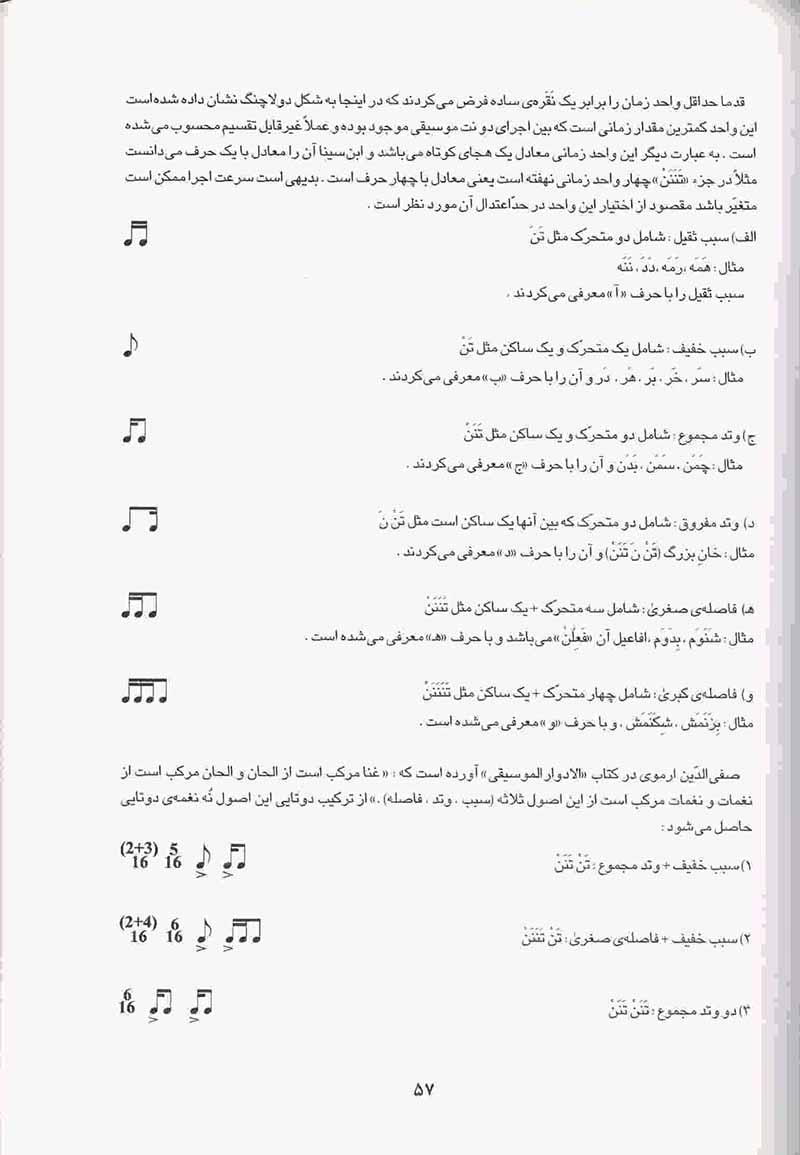 قدما حداقل واحد زمان را برابر یک نَقَره‌ی ساده فرض می‌کردند که در اینجا به شکل دولاچنگ نشان داده شده است
این واحد کمترین مقدار زمانی است که بین اجرای دو نت موسیقی موجود بوده و عملاً غیرقابل تقسیم محسوب می‌شده
است . به عبارت دیگر این واحد زمانی معادل یک هجای کوتاه می‌باشد و ابن‌سینا آن را معادل با یک حرف می‌دانست
مثلاً در جزء «تَنَنَنْ» چهار واحد زمانی نهفته است یعنی معادل با چهار حرف است . بدیهی است سرعت اجرا ممکن است
متغیّر باشد مقصود از اختیار این واحد در حدّاعتدال آن مورد نظر است .
الف) سبب ثقیل : شامل دو متحرک مثل تَنَ
مثال : هَمَه ،رَمَه ، دَدَ ، نَنَه
سبب ثقیل را با حرف «آ» معرفی می‌کردند .
ب) سبب خفیف : شامل یک متحرّک و یک ساکن مثل تَنْ
مثال : سَر ، خَر ، بَر ، هَر ، دَر و آن را با حرف «ب» معرفی می‌کردند .
ج) وتد مجموع : شامل دو متحرّک و یک ساکن مثل تَنَنْ
مثال : چَمَن ، سَمَن ، بَدَن و آن را با حرف «ج» معرفی می‌کردند .
د) وتد مفروق : شامل دو متحرّک که بین آنها یک ساکن است مثل تَنْ نَ
مثال : خانِ بزرگ (تَنْ نَ تَنَنْ) و آن را با حرف «د» معرفی می‌کردند .
هـ) فاصله‌ی صغریٰ : شامل سه متحرک + یک ساکن مثل تَنَنَنْ
مثال : شَنَوَم ، بِدَوَم ،افاعیل آن «فَعِلُنْ» می‌باشد و با حرف «هـ» معرفی می‌شده است .
و) فاصله‌ی کبریٰ : شامل چهار متحرّک + یک ساکن مثل تَنَنَنَنْ
مثال : بِزَنَمَش ، شِکَنَمَش ، و با حرف «و» معرفی می‌شده است .
صفی‌الدّین ارموی در کتاب «الادوار الموسیقی» آورده است که : «غنا مرکب است از الحان و الحان مرکب است از
نغمات و نغمات مرکب است از این اصول ثلاثه (سبب ، وتد ، فاصله) .» از ترکیب دوتایی این اصول نُه نغمه‌ی دوتایی
حاصل می‌شود :
۱) سبب خفیف + وتد مجموع : تَنْ تَنَنْ (2+3) 16 5 16
۲) سبب خفیف + فاصله‌ی صغریٰ : تَنْ تَنَنَنْ (2+4) 16 6 16
۳) دو وتد مجموع : تَنَنْ تَنَنْ 6 16
۵۷